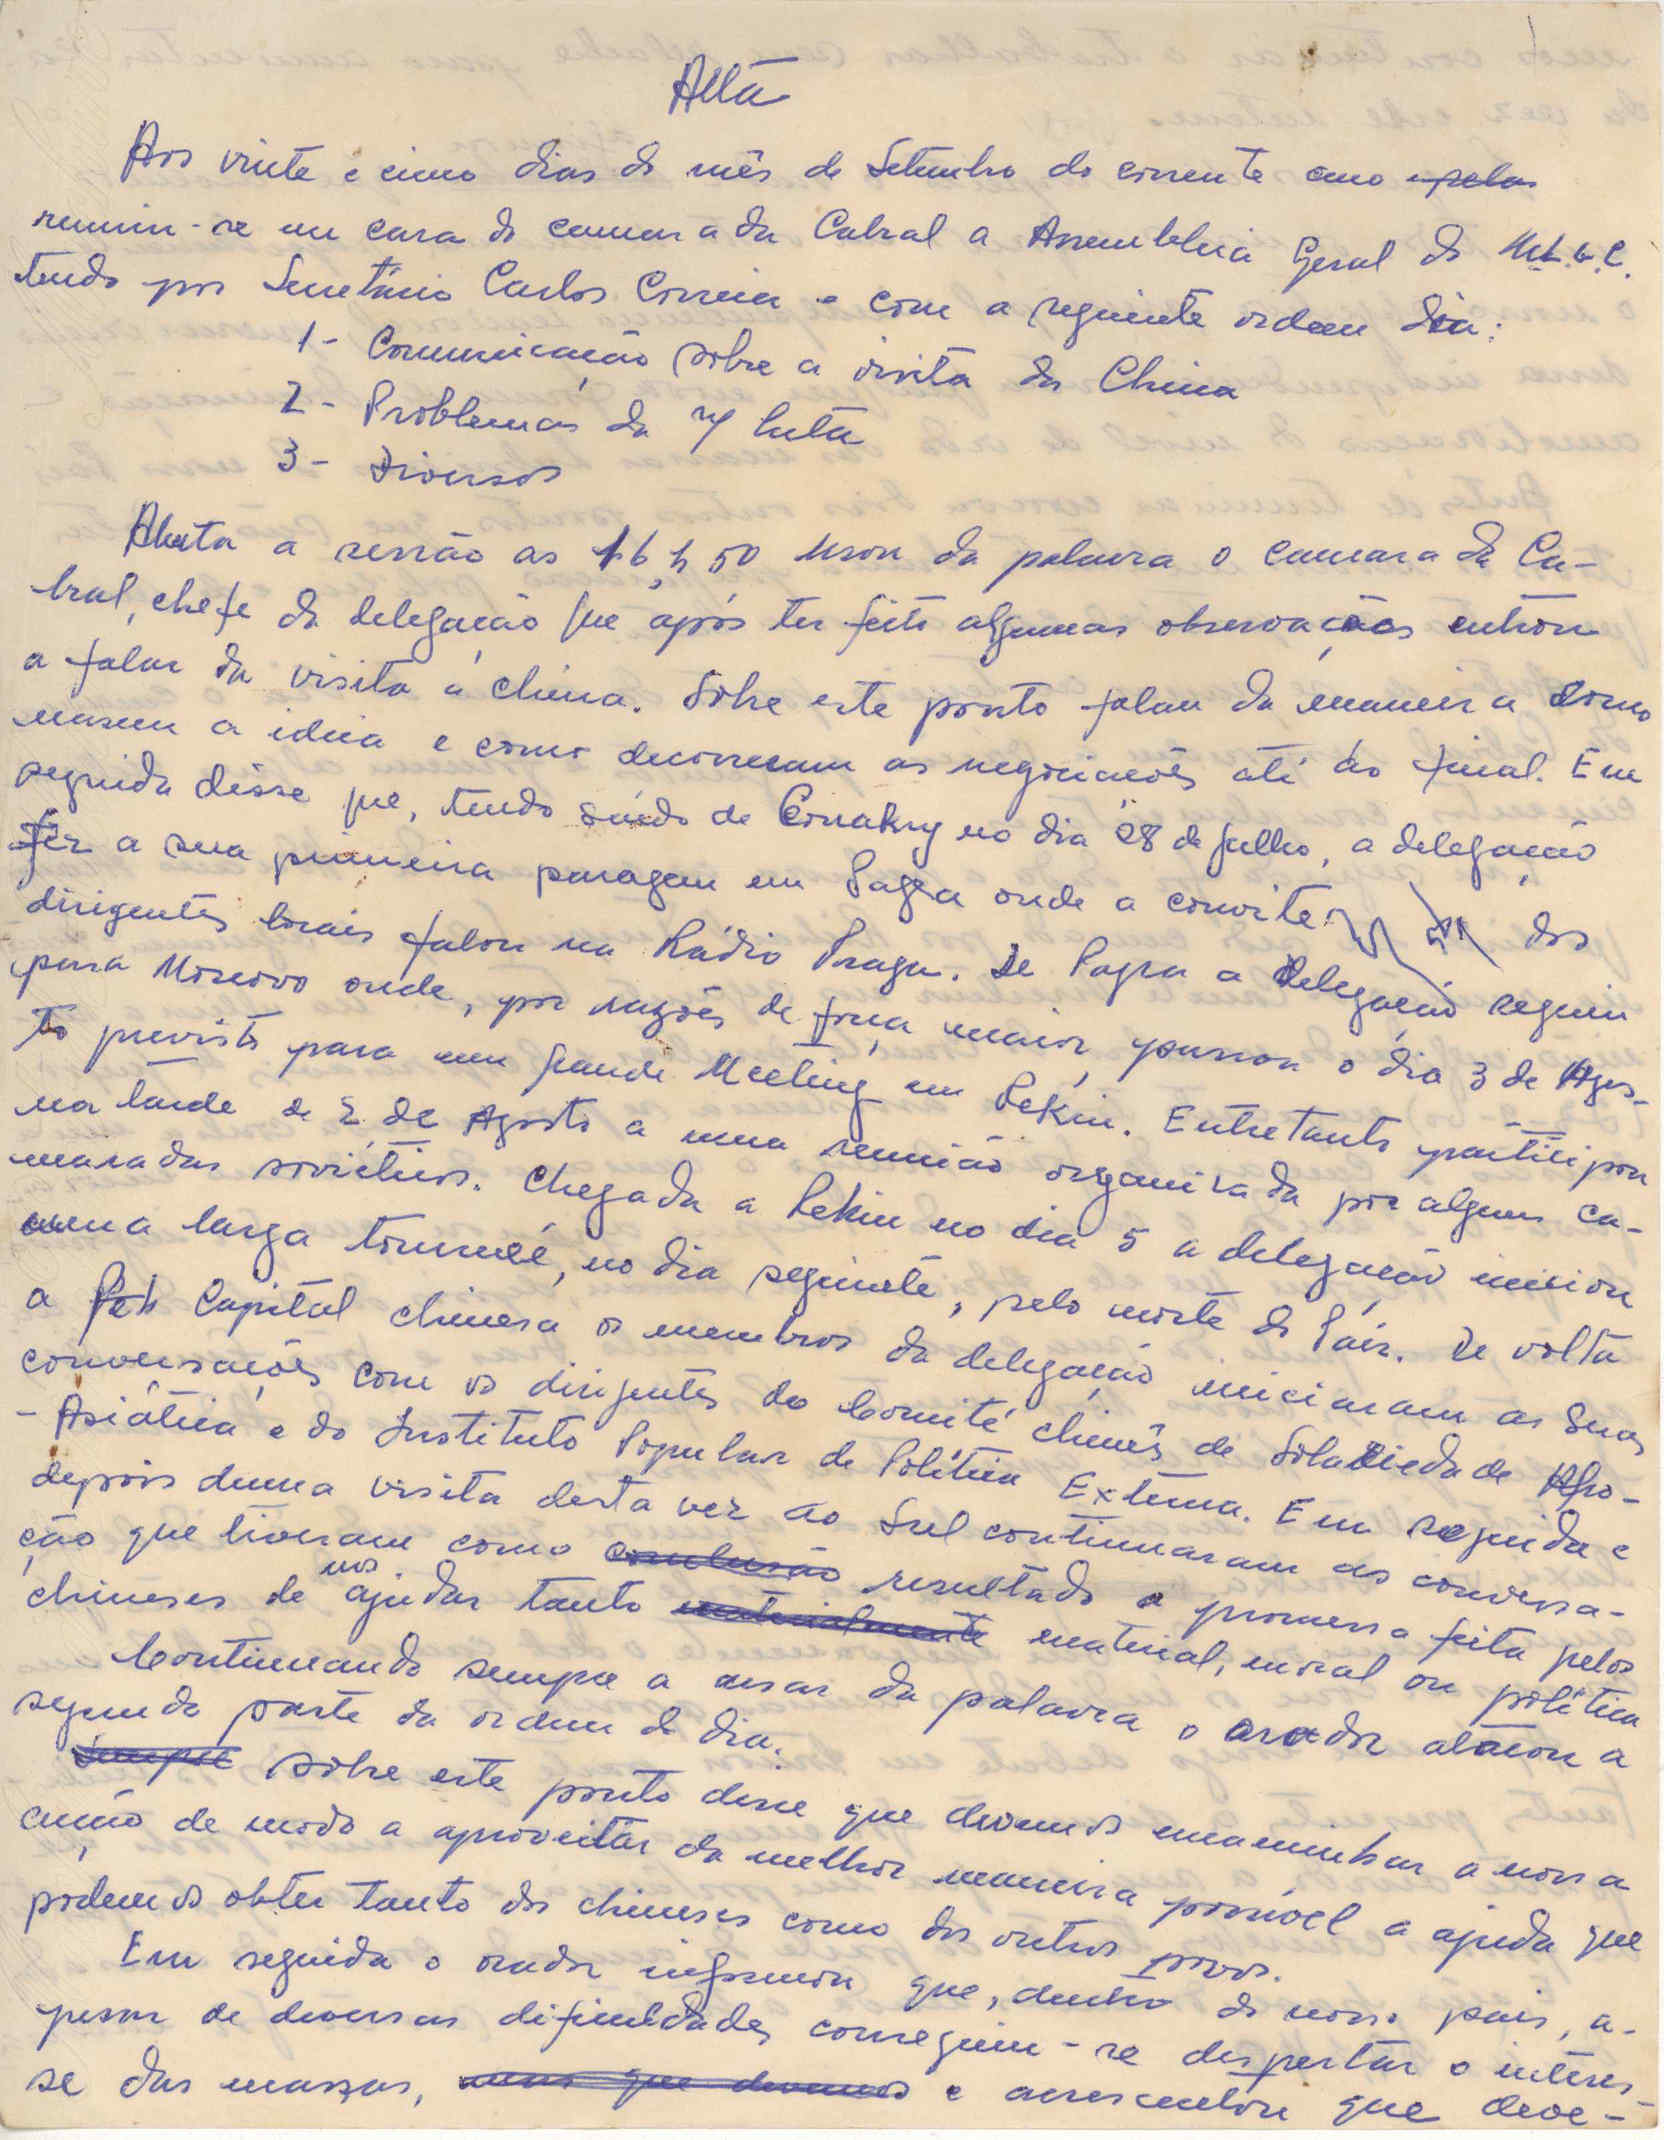 Acta
Aos vinte e cinco dias do mês de Setembro do corrente ano e pelas
reuniu-se em casa do camarada Cabral a Assembleia Geral do M.L.G.C.
tendo por Secretário Carlos Correia e com a seguinte ordem dia:
1 - Comunicação sobre a visita da China
2 - Problemas da n/ luta
3 - Diversos
Aberta a sessão as 16,h 50 usou da palavra o camarada Ca-
bral, chefe da delegação que após ter feito algumas observações entrou
a falar da visita á China. Sobre este ponto falou da maneira como
nasceu a ideia e como decorreram as negociações até ao final. Em
seguida disse que, tendo saído de Conakry no dia 28 de Julho, a delegação
fez a sua primeira paragem em Pagra onde a convite dos
dirigentes locais falou na Rádio Praga. De Pagra a delegação seguiu
para Moscovo onde, por razões de força maior, passou o dia 3 de Agos-
to previsto para um grande Meeting em Pekin. Entretanto participou
na tarde de 2 de Agosto a uma reunião organizada por alguns ca-
maradas soviéticos. Chegada a Pekin no dia 5 a delegação iniciou
uma larga tourneé, no dia seguinte, pelo norte do País. De volta
a Pek Capital chinesa os membros da delegação iniciaram as suas
conversações com os dirigentes do Comité chinês de Solariedade Afro-
- Asiática e do Instituto Popular de Política Externa. Em seguida e
depois duma visita desta vez ao Sul continuaram as conversa-
ção que tiveram como conclusão resultado a promessa feita pelos
chineses de nos ajudar tanto materialmente material, moral ou política
Continuando sempre a usar da palavra o orador atacou a
segunda parte da ordem do dia.
Sempre sobre este ponto disse que devemos encaminhar a nossa
acção de modo a aproveitar da melhor maneira possível a ajuda que
podemos obter tanto dos chineses como dos outros povos.
Em seguida o orador informou que, dentro do nosso país, a-
pesar de diversas dificuldades conseguiu-se despertar o interes-
se das massas, mas que devemos e acrescentou que deve-